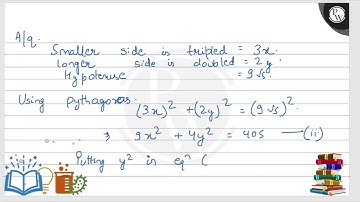 A/q.
Smaller side is tripled = 3x.
longer side is doubled = 2y
Hypotenuse = 9√5
Using pythagoras.
(3x)² + (2y)² = (9√5)².
⇒ 9x² + 4y² = 405 —(ii)
Putting y² in eqⁿ (